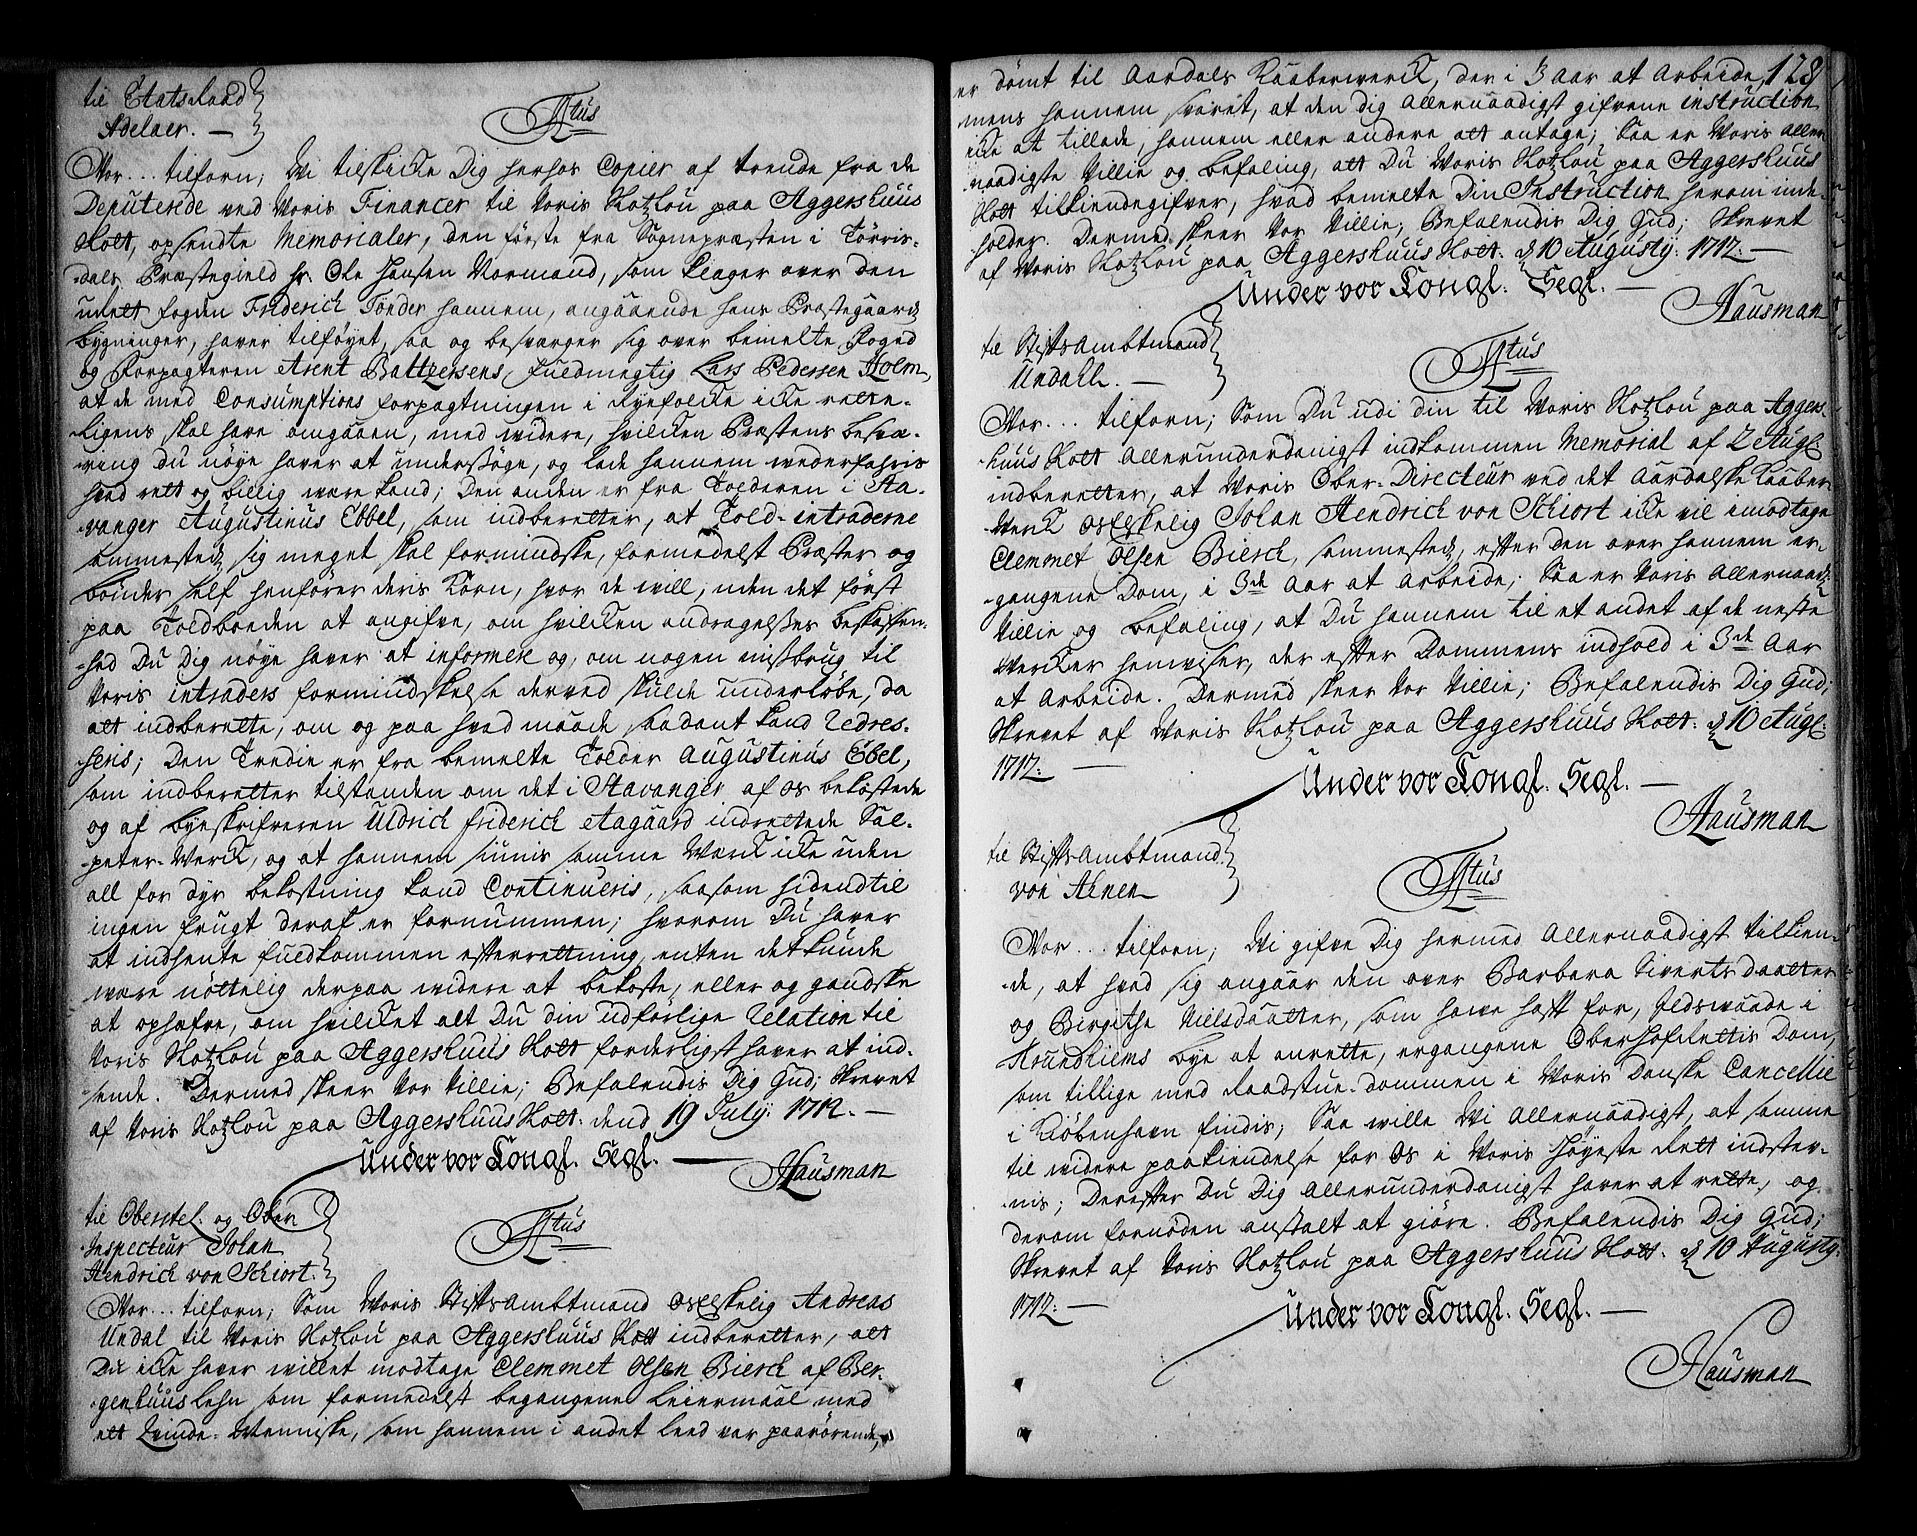 til Etats-Raad
Adelaer. —
F4tus
Vor... tilforn; Wi tilskicke Dig herhos Copier af trende fra de
Deputerede ved Voris Financer til Voris Slotzlou paa Aggershuus
Slott, opsendte Memorialer, den første fra Sognepræsten i Törris-
-dals Præstegield hr. Ole Hansen Normand, som klager over den
udett fogden Friderich Tönder hannem, angaaende hans Præstegaards
bygninger, haver tilføyet, saa og besværger sig over bemelte Foged
og Forpagteren Arent Baltzersens fuldmegtig Lars Pedersen Holm,
at de med Consumptions forpagtningen i Ryefolcke icke rette-
-ligens skal have omgaaen, med widere, hvilcken Præstens besvæ-
-ring Du nøye haver at undersöge, og lade hannem wederfahris
hved rett og billig være kand; Den anden er fra Tolderen i Sta-
-vanger Augustinus Ebbel, som indberetter, at Told-intraderne
sammesteds sig meget skal formindske, formedelst Præster og
bönder self henförer deris Korn, hvor de will, uden det først
paa Toldboeden at angifve, om hvilcken andragelses beskaffen-
-hed Du Dig nøye haver at informere og, om nogen misbrug til
Voris intraders formindskelse derved skulde underløbe, da
alt indberette, om og paa hvad maade saadant kand redres-
-seris; Den Tredie er fra bemelte Tolder Augustinus Ebel,
som indberetter tilstanden om det i Stavanger af os bekostede
og af byeskrifveren Uldrich friderich Aagaard indrettede Sal-
-peter-Werck, og at hannem siunis samme Werck icke uden
all for dyr bekostning kand Continueris, saasom hidendtil
ingen frugt deraf er fornummen; hvorom Du haver
at indhente fuldkommen efterrettning, enten det kunde
være nöttelig derpaa widere at bekoste, eller og gandske
at ophæfve, om hvilcket alt Du din udförlige Relation til
Voris Slotzlou paa Aggershuus Slott forderligst haver at ind-
-sende. Dermed skeer Vor Villie; Befalendis Dig Gud; Skrevet
af Voris Slotzlou paa Aggershuus Slott. dend 19 July: 1712. —
Under vor Kongl. Segl. —
Hausman
til Oberstel. og Ober
Inspecteur Johan
Hendrich von Schiort.
F4tus
Vor... tilforn; Som Voris Stiftsambtmand os Elskelig Andreas
Undal til Voris Slotzlou paa Aggershuus Slott indberetter, att
Du icke haver willet modtage Clemmet Olsen Biersch af Ber-
-genhuuslehn som formedelst begangene leiermaal med
ett Qvinde-Menniske, som hannem i andet leed var paarörende,
128
er dömt til Aardals Kaaberwerck, der i 3 aar at arbeide,
mens hannem svaret, at den dig allernaadigst gifvene instruction
icke at tillade, hannem eller andere att antage; Saa er Voris aller-
naadigste Villie og befaling, att Du Voris Slotzlou paa Aggershuus
Slott tilkiendegifver, hvad bemelte Din Instruction herom inde-
holder. Dermed skeer Vor Villie; Befalendis Dig Gud; Skrevet
af Voris Slotzlou paa Aggershuus Slott. d 10 Augusty: 1712. —
Under vor Kongl. Segl. —
Hausman
til Stiftsambtmand
Undahl. —
F4tus
Vor... tilforn; Som Du udi din til Voris Slotzlou paa Aggers-
-huus Slott allerunderdanigst indkommen Memorial af 2 Augl:
indberetter, at Voris Ober-Directeur ved det Aardalske Kaaber
Werck os Elskelig Johan Hendrich von Schiort icke vil imodtage
Clemmet Olsen Biersch, sammesteds, efter den over hannem er-
-gangene Dom, i 3de aar at arbeide; Saa er Voris allernaadigste
Villie og befaling, at Du hannem til et andet af de neste
wercker henviser, der efter Dommens indhold i 3de Aar
at arbeide. Dermed skeer Vor Villie; Befalendis Dig Gud;
Skrevet af Voris Slotzlou paa Aggershuus Slott. d 10 Augl:
1712: —
Under vor Kongl. Segl. —
Hausman
til Stiftsambtmand
von Ahnen —
F4tus
Vor... tilforn; Wi gifve Dig hermed allernaadigst tilkien-
-de, at hved sig angaar den over Barbara Siverts daatter
og Birgithe Nielsdaatter, som have hafft for, Ildswaade i
Trundhiems bye at anrette, ergangene Oberhofrettis Dom,
som tillige med Raadstue-dommen i Voris Danske Cancellie
i Kiöbenhavn findis; Saa wille Wi allernaadigst, at samme
til widere paakiendelse for Os i Voris Høyeste Rett indstev-
-nis; Derefter Du Dig allerunderdanigst haver at rette, og
derom fornøden anstalt at giöre. Befalendis Dig Gud;
Skrevet af Voris Slotzlou paa Aggershuus Slott. d 10 Augusty:
1712: —
Under vor Kongl. Segl. —
Hausman